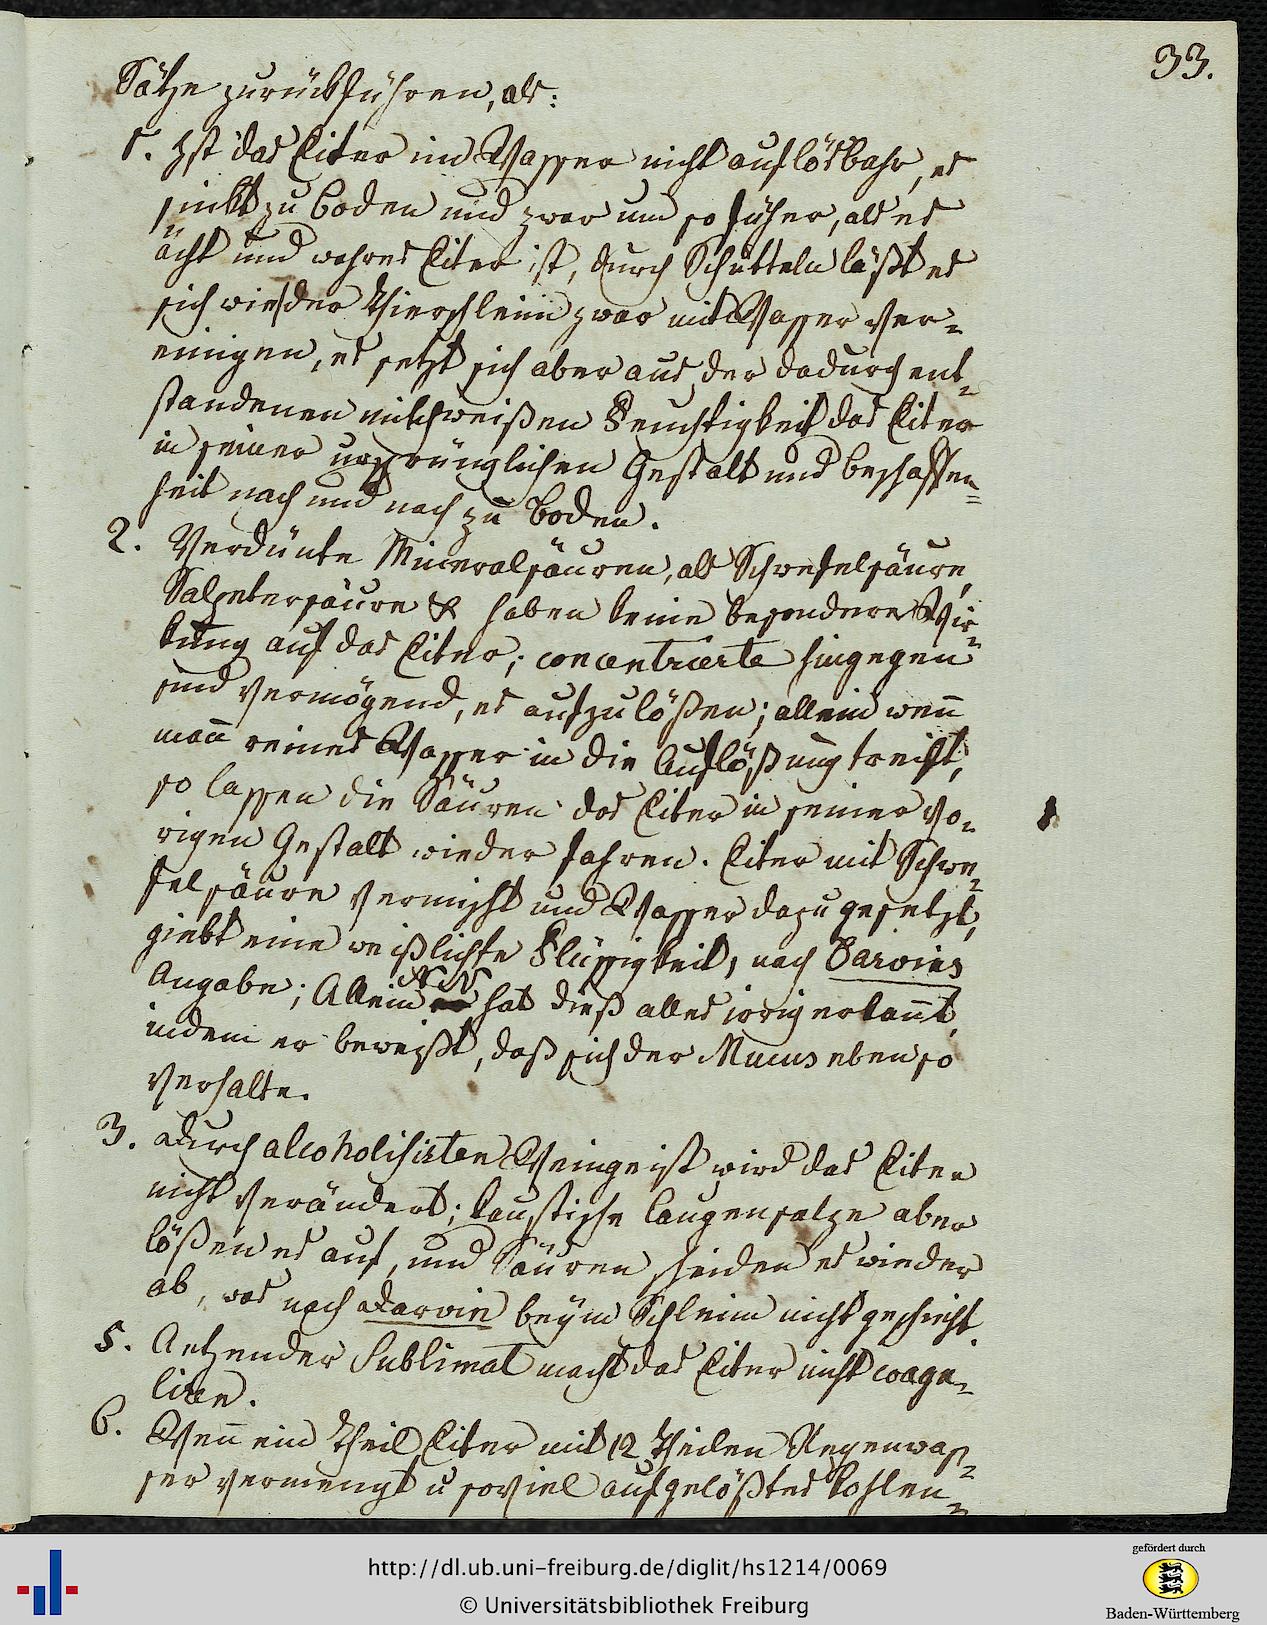 33.
Sätze zurückführen, als:
1. Ist das Eiter im Wasser nicht auflösbahr, es
sinkt zu Boden und zwar um so früher, als es
ächt und wahres Eiter ist, durch Schütteln läßt es
sich wie der Thierschleim zwar mit Wasser ver-
einigen, es setzt sich aber aus der dadurch ent-
standenen milchweißen Feuchtigkeit das Eiter
in seiner ursprünglichen Gestalt und Beschaffen-
heit nach und nach zu Boden.
2. Verdünte Mineralsäuren, als Schwefelsäure,
Salpetersäure & haben keine besondere Wir-
kung auf das Eiter; concentrierte hingegen
sind vermögend, es aufzulößen; allein wen̄
man̄ reines Wasser in die Auflößung treift,
so lassen die Säuren das Eiter in seiner vo-
rigen Gestalt wieder fahren. Eiter mit Schwe-
felsäure vermischt und Wasser dazu gesetzt,
giebt eine weißlichte Flüssigkeit, nach Darwins
Angabe; Allein NN hat dieß alles irrig erkan̄t,
indem er beweißt, daß sich der Mucus eben so
verhalte.
3. Durch alcoholisirten Weingeist wird das Eiter
nicht verändert; kaustische Laugensalze aber
lößen es auf, und Säuren scheiden es wieder
ab, was nach Darwin beÿm Schleim nicht geschieht.
5. Aetzender Sublimat macht das Eiter nicht coagu-
liren.
6. Wen̄ ein Theil Eiter mit 12 Theilen Regenwas-
ser vermengt u soviel aufgelößtes Kohlen-
http://dl.ub.uni-freiburg.de/diglit/hs1214/0069
© Universitätsbibliothek Freiburg
gefördert durch
Baden-Württemberg